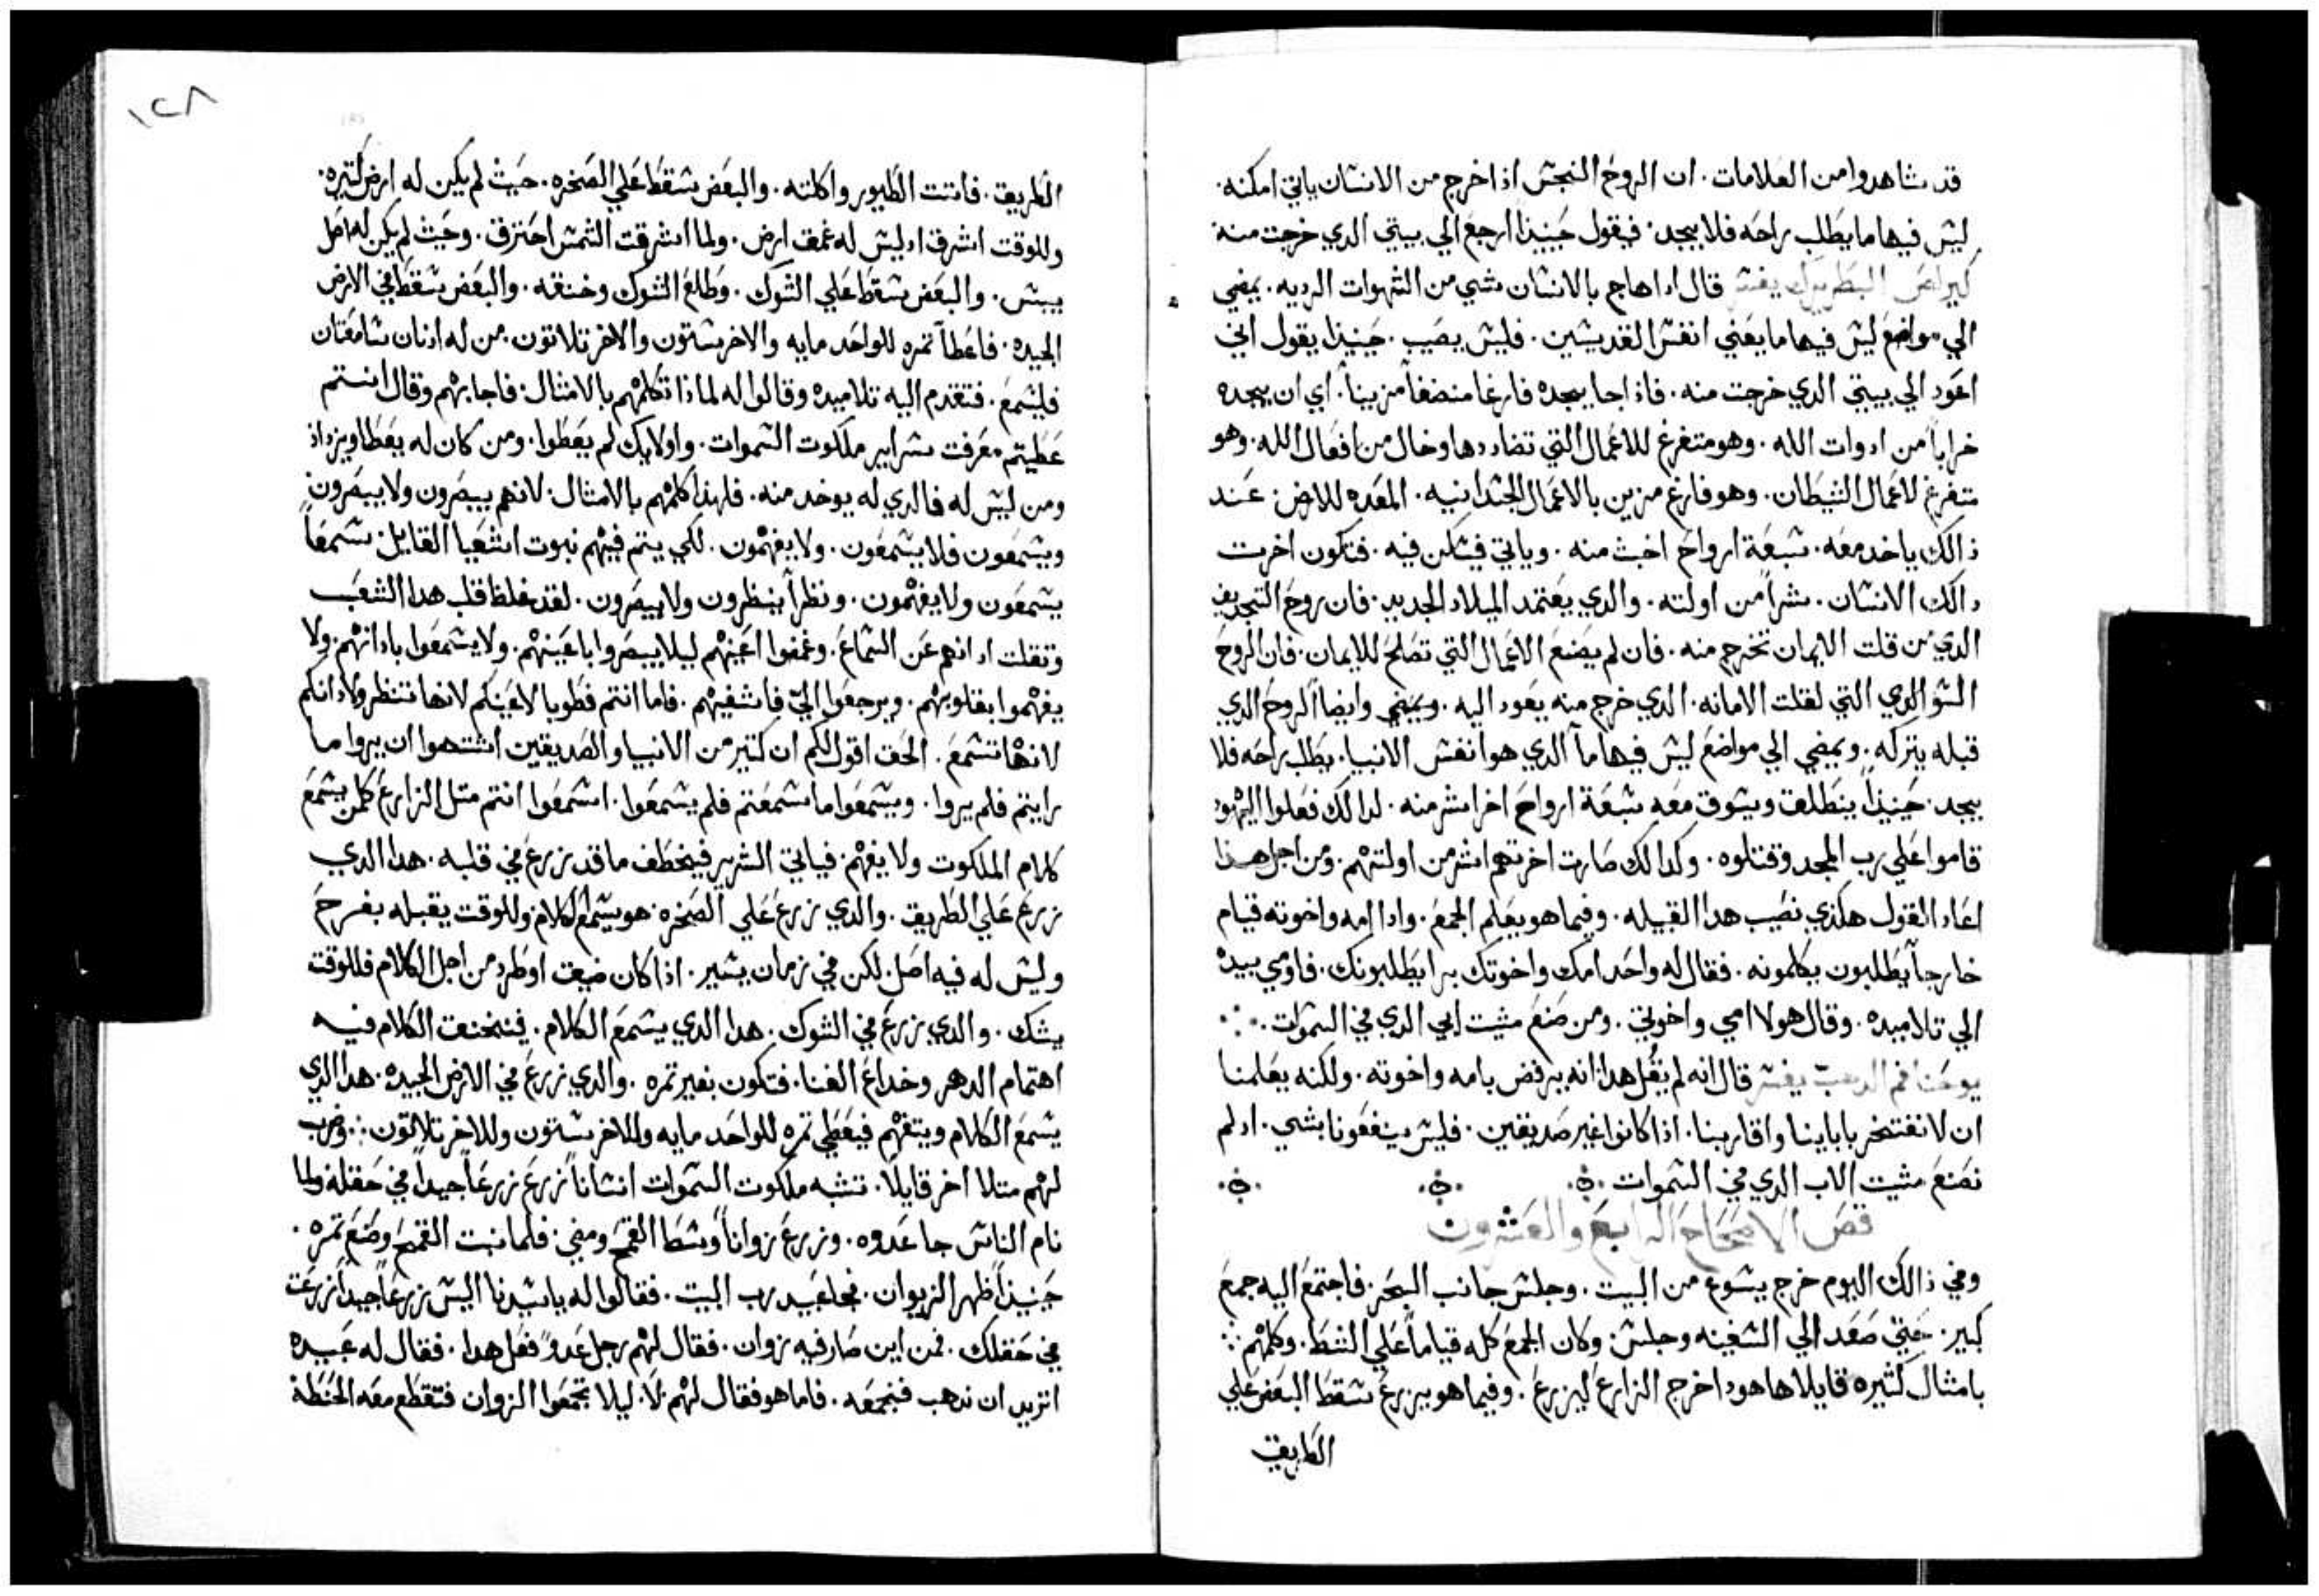 قد شاهدوا من العلامات. ان الروح النجس اذا خرج من الانسان ياتي امكنه.
ليس فيها ما يطلب راحه فلا يجد. فيقول حينيذاً ارجع الي بيتي الدي خرجت منه.
كيرلص البطريرك يفسر قال ادا هاج بالانسان شي من الشهوات الرديه. يمضي
الي مواضع ليس فيها ما يعني انفس القديسين. فليس يصيب. حينيذا يقول اني
اعود الي بيتي الدي خرجت منه. فاذا جا يجده فارغا منضفاً مزيناً. اي ان يجده
خراباً من ادوات الله. وهو متفرغ للاعمال التي تضاددها وخال من افعال الله. وهو
متفرغ لاعمال الشيطان. وهو فارغ مزين بالاعمال الجسدانيه. المعده للارض. عند
ذالك ياخد معه. سبعة ارواح اخبث منه. وياتي فيسكن فيه. فتكون اخرت
دالك الانسان. شراً من اولته. والدي يعتمد الميلاد الجديد. فان روح التجديف
الدي من قلت الايمان تخرج منه. فان لم يصنع الاعمال التي تصلح للايمان. فان الروح
السو الدي التي لقلت الامانه. الدي خرج منه يعود اليه. ويمضي وايضاً الروح الدي
قبله يتركه. ويمضي الي مواضع ليس فيها ماً الدي هو انفس الانبيا. يطلب راحه فلا
يجد. حينيذاً ينطلق ويسوق معه سبعة ارواح اخر اشر منه. لدالك فعلوا اليهود
قاموا علي رب المجد وقتلوه. وكدالك صارت اخرتهم اشر من اولتهم. ومن اجل هدا
اعاد القول هكذي نصيب هدا القبيله. وفيما هو يعلم الجمع. وادا امه واخوته قيام
خارجاً يطلبون يكلمونه. فقال له واحد امك واخوتك برا يطلبونك. فاومي بيده
الي تلاميده. وقال هولا امي واخوتي. ومن صنع مشيت ابي الدي في السموات.
يوحنا فم الدهب يفسر قال انه لم يقل هدا انه يرفض بامه واخوته. ولكنه يعلمنا
ان لا نفتخر باباينا واقاربنا. اذا كانوا غير صديقين. فليس ينفعونا بشي. اد لم
نصنع مشيت الاب الدي في السموات
فص الاصحاح الرابع والعشرون
وفي ذالك اليوم خرج يسوع من البيت. وجلس جانب البحر. فاجتمع اليه جمع
كبير. حتي صعد الي السفينه وجلس. وكان الجمع كله قياماً علي الشط. وكلمهم
بامثال كثيره قايلا ها هودا خرج الزارع ليزرع. وفيما هو يزرع سقط البعض علي
الطريق
١٢٨
الطريق. فاتت الطيور واكلته. والبعض سقط علي الصخره. حيث لم يكن له ارض كتيره.
وللوقت اشرق اد ليس له عمق ارض. ولما اشرقت الشمس احترق. وحيث لم يكن له اصل
يبس. والبعض سقط علي الشوك. وطلع الشوك وخنقه. والبعض سقط في الارض
الجيده. فاعطا تمره للواحد مايه والاخر ستون والاخر تلاتون. من له ادنان سامعتان
فليسمع. فتقدم اليه تلاميده وقالوا له لماذا تكلمهم بالامثال. فاجابهم وقال انتم
عطيتم معرفت سراير ملكوت السموات. واولايك لم يعطوا. ومن كان له يعطا ويزداد
ومن ليس له فالدي له يوخد منه. فلهذا كلمهم بالامثال. لانهم يبصرون ولا يبصرون
ويسمعون فلا يسمعون. ولا يفهمون. لكي يتم فيهم نبوت اشعيا القايل. سمعاً
يسمعون ولا يفهمون. ونظراً ينظرون ولا يبصرون. لقد غلظ قلب هدا الشعب
وتقلت ادانهم عن السماع. وغمضوا اعينهم ليلا يبصروا باعينهم. ولا يسمعوا بادانهم. ولا
يفهموا بقلوبهم. ويرجعوا اليّ فاشفيهم. فاما انتم فطوبا لاعينكم لانها تنظر ولادانكم
لانها تسمع. الحق اقول لكم ان كتير من الانبيا والصديقين اشتهوا ان يروا ما
رايتم فلم يروا. ويسمعوا ما سمعتم فلم يسمعوا. اسمعوا انتم متل الزارع كلمن يسمع
كلام الملكوت ولا يفهم. فياتي الشرير فيخطف ما قد زرع في قلبه. هدا الدي
زرع علي الطريق. والدي زرع علي الصخره. هو يسمع الكلام وللوقت يقبله بفرح
وليس له فيه اصل. لكن في زمان يسير. اذا كان ضيق او طرد من اجل الكلام فللوقت
يشك. والدي زرع في الشوك. هدا الدي يسمع الكلام. فيخنق الكلام فيه
اهتمام الدهر وخداع الغنا. فتكون بغير تمره. والدي زرع في الارض الجيده. هدا الدي
يسمع الكلام ويتفهم فيعطي تمره للواحد مايه وللاخر ستون وللاخر تلاتون. وضرب
لهم متلا اخر قايلا. تشبه ملكوت السموات انساناً زرع زرعاً جيداً في حقله. ولما
نام الناس جا عدوه. وزرع زواناً وسط القمح ومضي. فلما نبت القمح وصنع تمره.
حينيذاً ظهر الزيوان. فجا عبيد رب البيت. فقالوا له يا سيدنا اليس زرعاً جيداً زرعت
في حقلك. فمن اين صار فيه زوان. فقال لهم رجل عدوً فعل هدا. فقال له عبيده
اتريد ان ندهب فنجمعه. فاما هو فقال لهم لا. ليلا تجمعوا الزوان فتقطع معه الحنطة